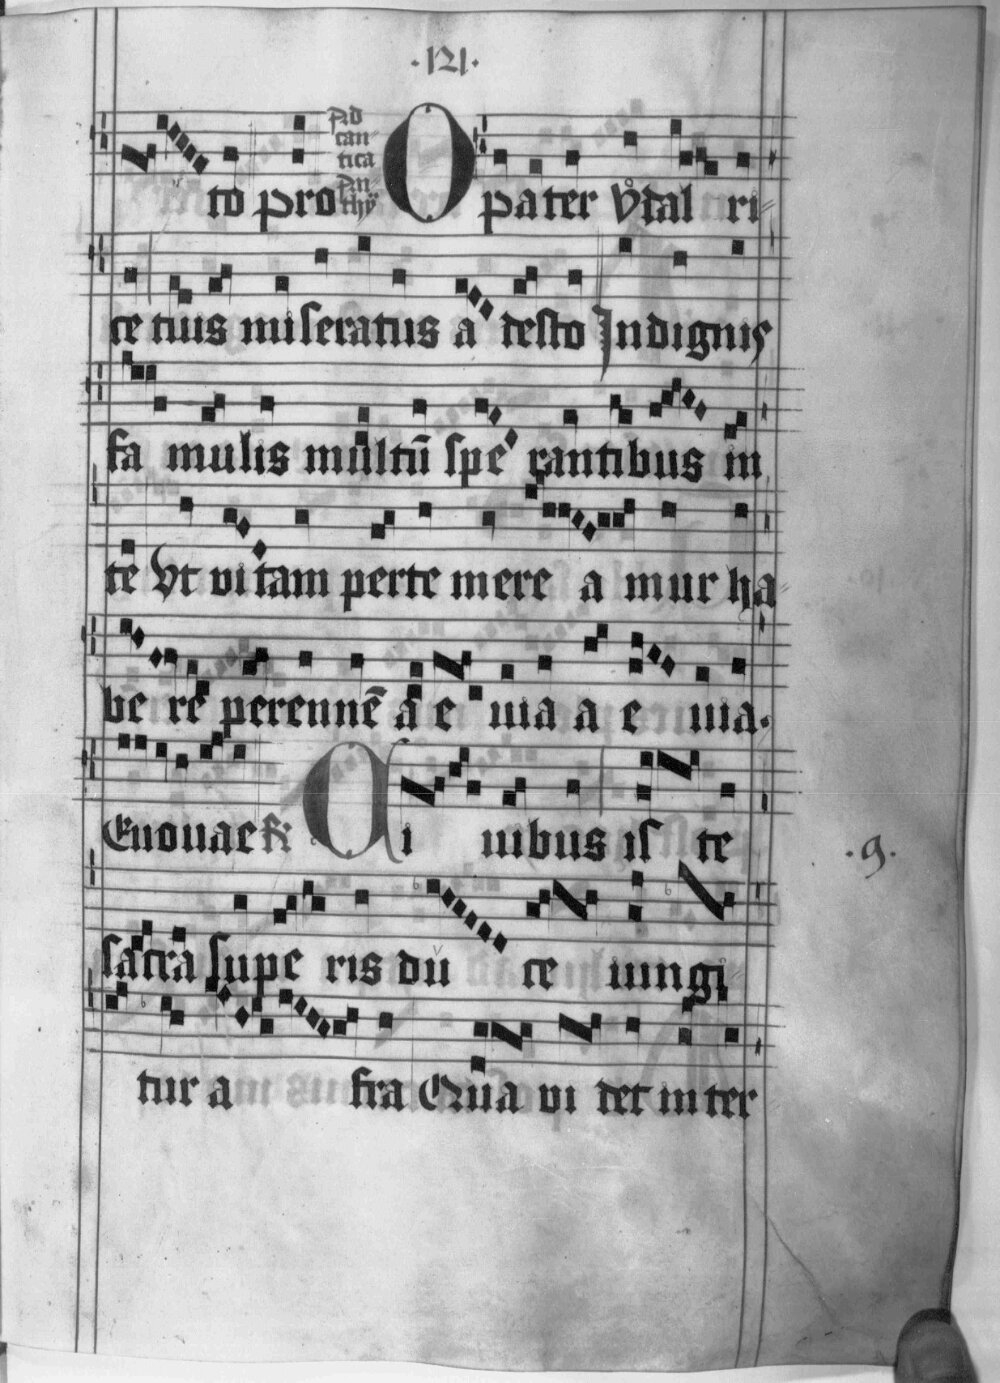 ·121·
to pro Ad can- tica An- thy O pater Vdal ri-
ce tuis miseratus a desto Indignis
fa mulis multū spe rantibus in
te Vt vi tam per te mere a mur ha-
be re perennē a e uia a e uia.
Euouae R Ciuibus is te
sacra supe ris dū ce iungi-
tur a fra Qua vi det in ter
·9·